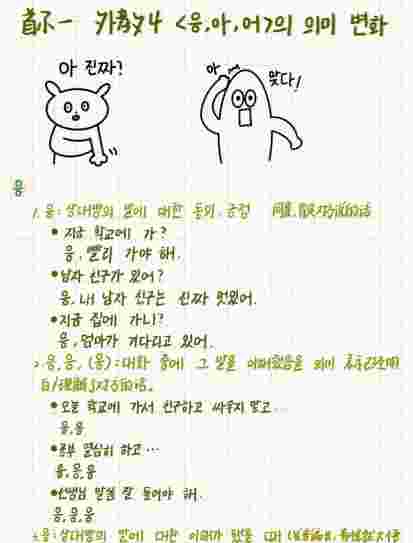 首尔一 外教 4 <응, 아, 어>의 의미 변화
아 진짜?
아
맞다!
응
1. 응: 상대방의 말에 대한 동의, 긍정 同意,
• 지금 학교에 가?
응, 빨리 가야 해.
• 남자 친구가 있어?
응, 내 남자 친구는 진짜 멋있어.
• 지금 집에 가니?
응, 엄마가 기다리고 있어.
2. 응, 응, (응): 대화 중에 그 말을 이해했음을 의미 表示已经明
白/理解了对方的话.
• 오늘 학교에 가서 친구하고 싸우지 말고...
응, 응
• 공부 열심히 하고...
응, 응, 응
• 선생님 말씀 잘 들어야 해.
응, 응, 응
3. 응: 상대방의 말에 대한 이해가